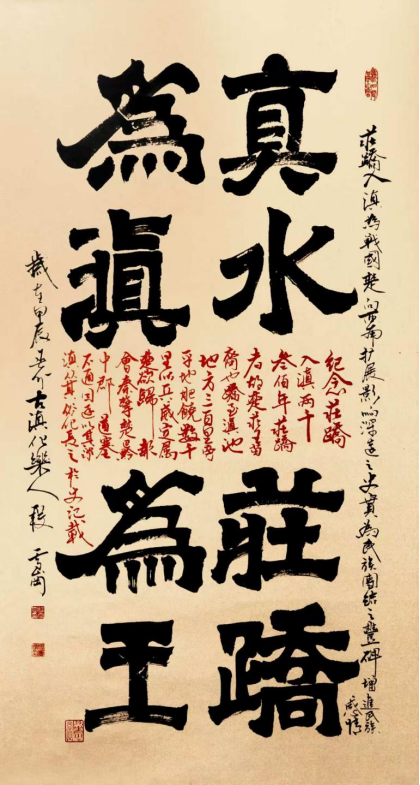 莊蹻入滇為戰國楚向西南扩展影响深遠之史實為民族團结之豐碑增進民族
感情
真水
為滇
紀念莊蹻
入滇兩千
叁佰年莊蹻
者故楚莊王苗
裔也蹻至滇池
地方三百里旁
平地肥饒數千
里以兵威定屬
楚欲歸報
會秦擊楚黔
中郡道塞
不通因还以其眾
滇從其俗以長之於史記載
莊蹻
為王
歲在甲辰春古滇樂人段